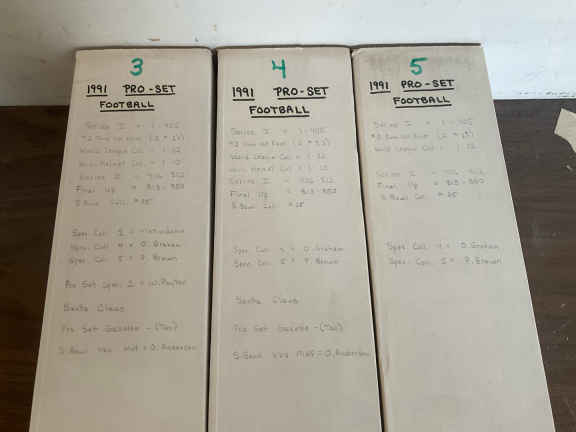 3
1991 PRO-SET
FOOTBALL
Series I = 1-405
World League Coll. = 1-32
World Helmet Coll. = 1-10
Series II = 406-812
Final Up = 813-850
S. Bowl Coll.
Spec. Coll. 4 = O. Graham
Spec. Coll. 5 = P. Brown
Pro Set Spec. = W. Payton
Santa Claus
Pro Set Gazette -
S. Bowl XXV MVP = O. Anderson
4
1991 PRO-SET
FOOTBALL
Series I = 1-405
World League Coll. = 1-32
World Helmet Coll. = 1-10
Series II = 406-812
Final Up = 813-850
S. Bowl Coll.
Spec. Coll. 4 = O. Graham
Spec. Coll. 5 = P. Brown
Santa Claus
Pro Set Gazette -
S. Bowl XXV MVP = O. Anderson
5
1991 PRO-SET
FOOTBALL
Series I = 1-405
World League Coll. = 1-32
Series II = 406-812
Final Up = 813-850
S. Bowl Coll.
Spec. Coll. 4 = O. Graham
Spec. Coll. 5 = P. Brown